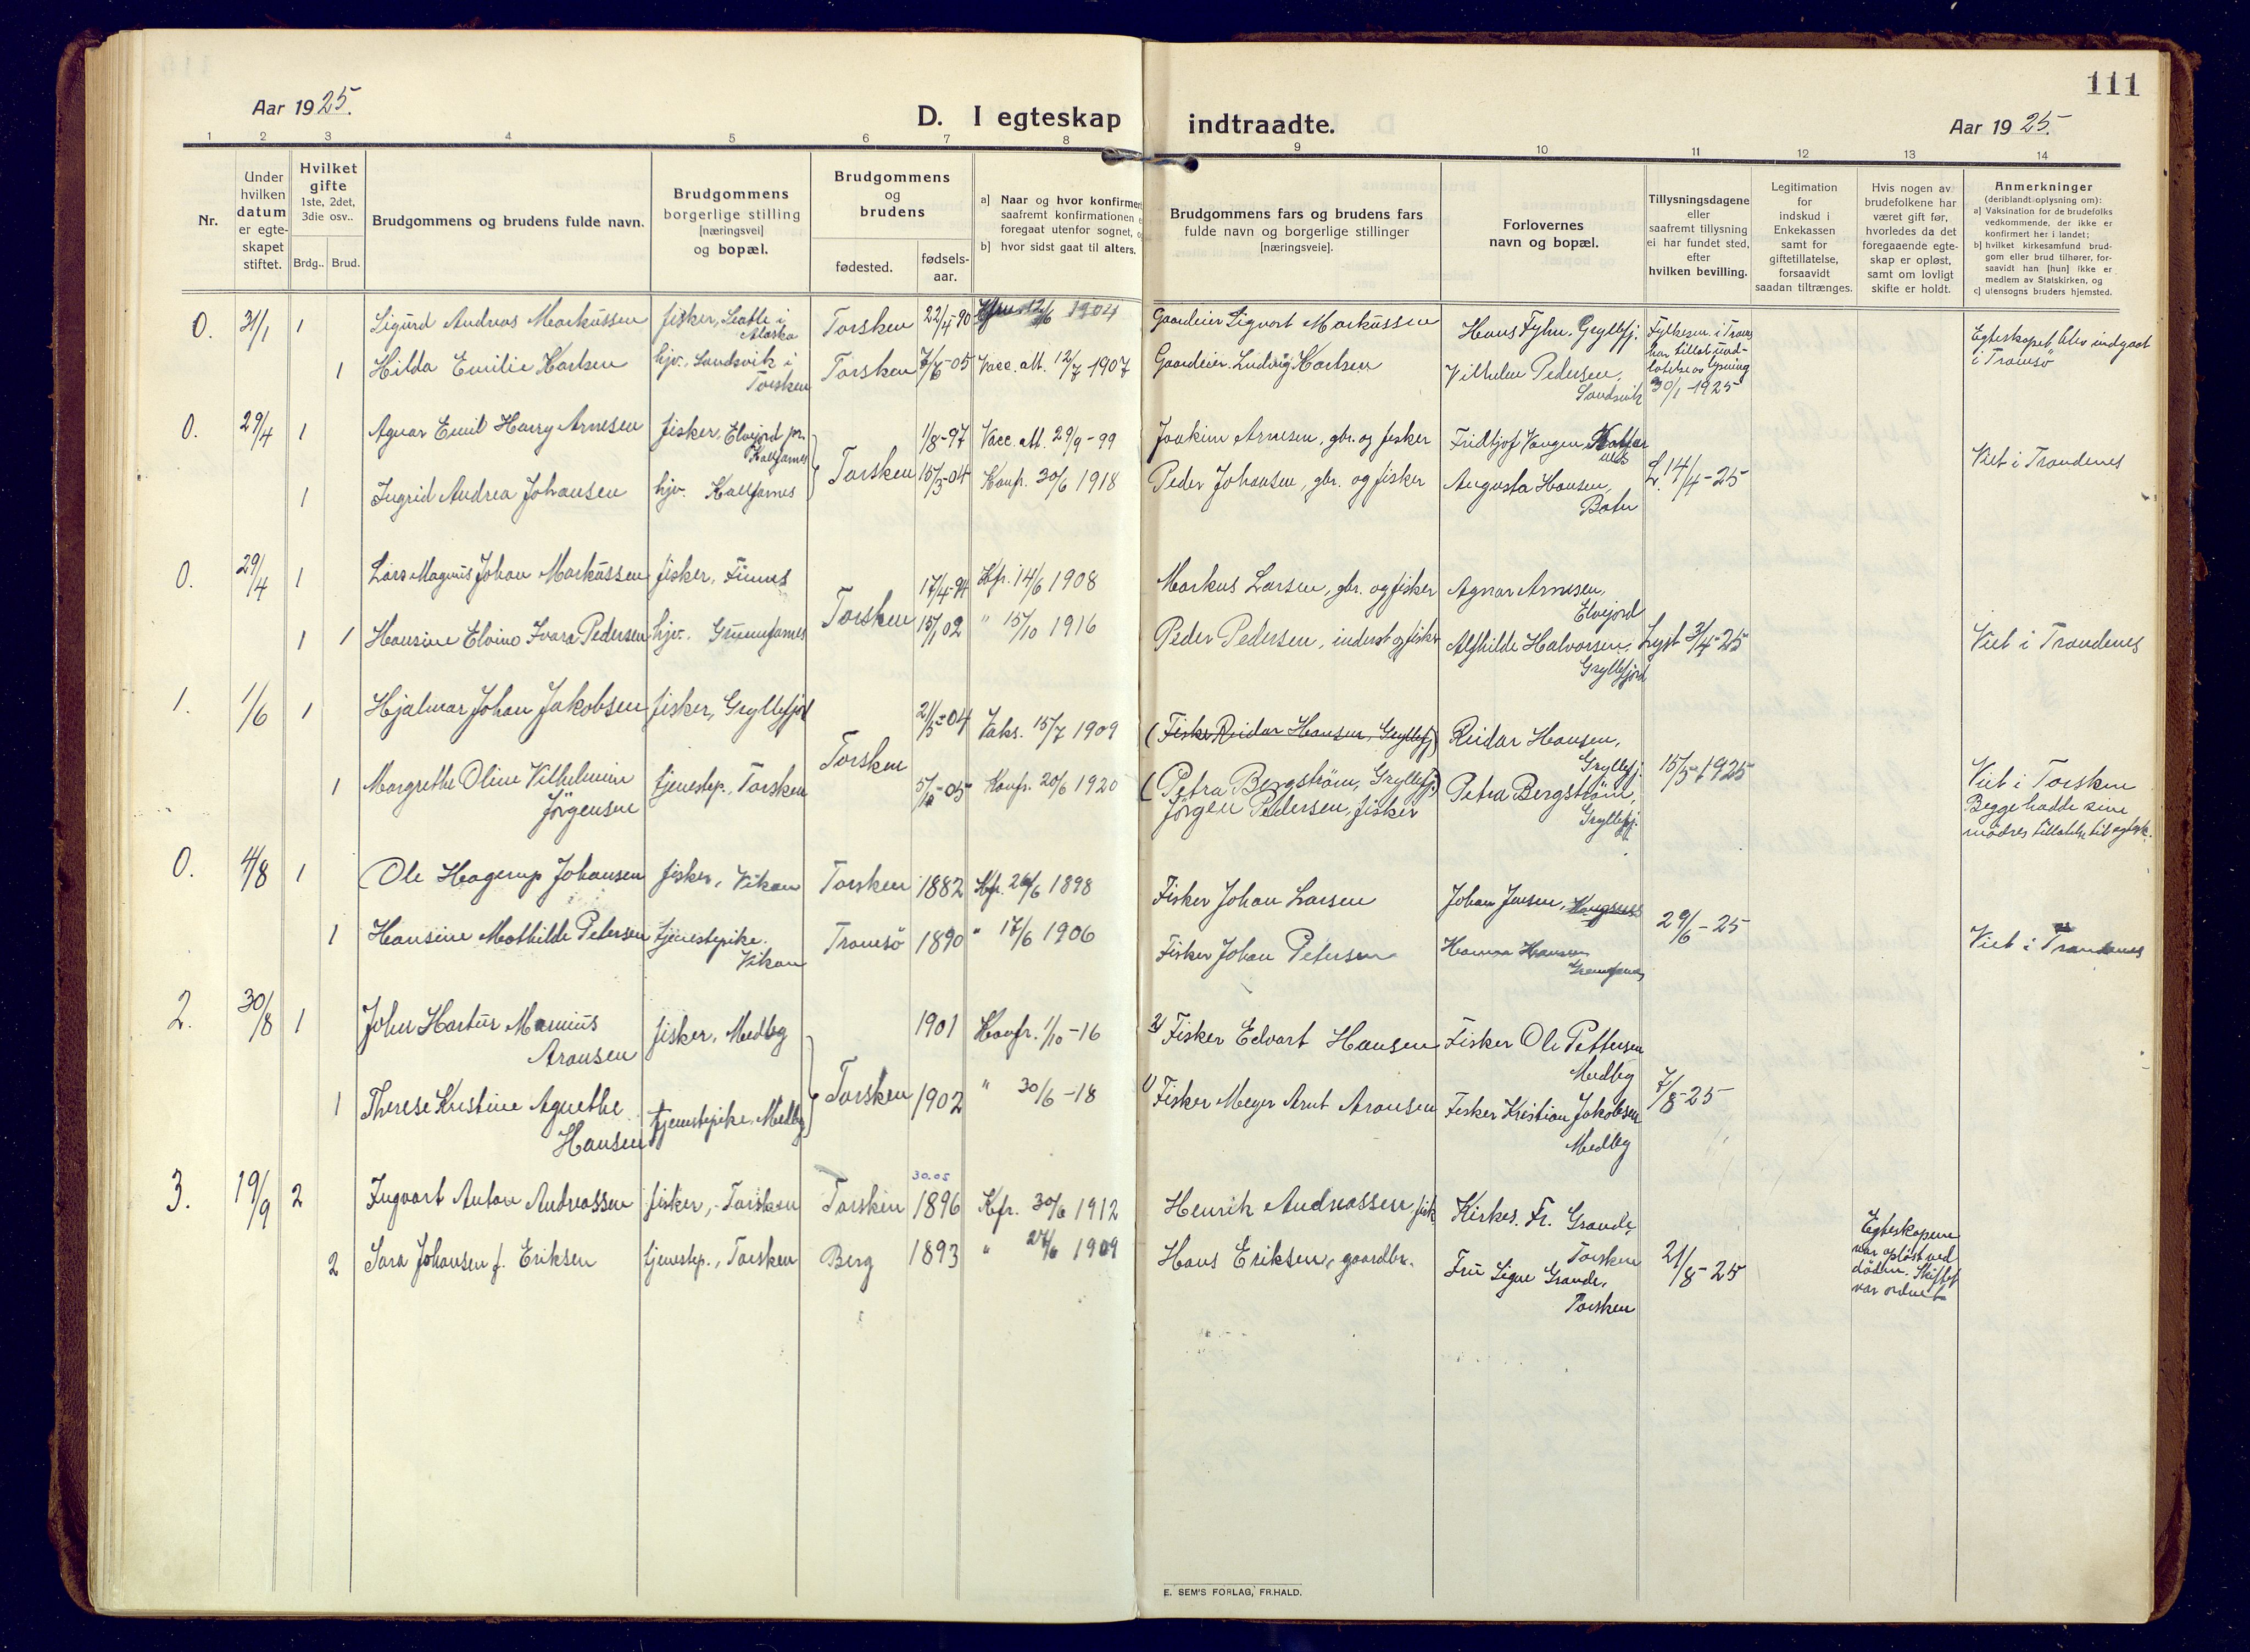 111
Aar 1925.
D. I egteskap indtraadte.
Aar 1925.
1 2 3 4 5 6 7 8 9 10 11 12 13 14
Nr.
Under
hvilken
datum
er egte-
skapet
stiftet.
Hvilket
gifte
1ste, 2det,
3die osv..
Brdg.. Brud.
Brudgommens og brudens fulde navn.
Brudgommens
borgerlige stilling
[næringsvei]
og bopæl.
Brudgommens
og
brudens
fødested.
fødsels-
aar.
a] Naar og hvor konfirmer
saafremt konfirmationen
foregaat utenfor sognet, o
b] hvor sidst gaat til alters.
Brudgommens fars og brudens fars
fulde navn og borgerlige stillinger
[næringsveie].
Forlovernes
navn og bopæl.
Tillysningsdagene
eller
saafremt tillysning
ei har fundet sted,
efter
hvilken bevilling.
Legitimation
for
indskud i
Enkekassen
samt for
giftetillatelse,
forsaavidt
saadan tiltrænges.
Hvis nogen av
brudefolkene har
været gift før,
hvorledes da det
foregaaende egte-
skap er opløst,
samt om lovligt
skifte er holdt.
Anmerkninger
(deriblandt oplysning om):
a] Vaksination for de brudefolks
vedkommende, der ikke er
konfirmert her i landet;
b] hvilket kirkesamfund brud-
gom eller brud tilhører, for-
saavidt han [hun] ikke er
medlem av Statskirken, og
c] utensogns bruders hjemsted.
0. 31/1 1 Sigurd Andreas Markussen fisker, Seatle i Torsken 22/4-90 12/6 1904 Gaardeier Sigvart Markussen Hans Fyhn, Gryllefj. Fylkesm. i Troms
Alaska
har tillat und-
Egteskapet blev indgaat
i Tromsö
1 Hilda Emilie Karlsen hjv., Sandsvik i Torsken 7/6-05 Vacc. att. 12/7 1907 Gaardeier Ludvig Karlsen Vilhelm Pedersen,
Torsken
Sandsvik
latelse av lysning
30/1-1925
0. 29/4 1 Agnar Emil Harry Arnesen fisker, Elvejord pr. 1/8-97 Vacc. att. 29/9-99 Joakim Arnesen, gbr. og fisker Fridtjof Vangen,
Kalfarnes
1 Ingrid Andrea Johansen hjv. Kalfarnes Torsken 15/3-04 Konfr. 30/6 1918 Peder Johansen, gbr. og fisker Augusta Hansen, L. 14/4-25 Viet i Trondenes
0. 29/4 1 Lars Magnus Johan Markussen fisker, Finnes 17/4-94 Kfr. 14/6 1908 Markus Larsen, gbr. og fisker Agnar Arnesen,
Elvejord
1 1 Hansine Elvine Ivara Pedersen hjv. Grunnfarnes Torsken 15/1 02 " 15/10 1916 Peder Pedersen, inderst og fisker Alfhilde Halvorsen, Lyst 3/4-25 Viet i Trondenes
Gryllefjord
1. 1/6 1 Hjalmar Johan Jakobsen fisker, Gryllefjord 21/5-04 Vaks. 15/7 1909 (Fisker Reidar Hansen, Gryllefj) Reidar Hansen,
Gryllefj.
1 Margrethe Oline Vilhelmine tjenestep., Torsken Torsken 5/12-05 Konfr. 20/6 1920 (Petra Bergström, Gryllefj.) Petra Bergström, 15/5-1925 Viet i Torsken
Jörgensen
Jörgen Pedersen, fisker
Gryllefj.
Begge hadde sine
mödres tillatelse til egtesk.
0. 4/8 1 Ole Hagerup Johansen fisker, Vikan Torsken 1882 Kfr. 26/6 1898 Fisker Johan Larsen Johan Jensen,
1 Hansine Mathilde Petersen tjenestepike. Tromsö 1890 " 17/6 1906 Fisker Johan Petersen Hanna Hansen 29/6-25 Viet i Trondenes
Vikan
2. 30/8 1 John Hartur Marinius fisker, Medby 1901 Konfr. 1/10-16 2) Fisker Edvart Hansen Fisker Ole Pettersen
Aronsen
Medby
1 Therese Kristine Agnethe tjenestepike, Medby Torsken 1902 " 30/6-18 1) Fisker Meyer Arnt Aronsen Fisker Kristian Jakobsen 7/8-25
Hansen
Medby
3. 19/9 2 Ingvart Anton Andreassen fisker, Torsken Torsken 30.05 1896 Kfr. 30/6 1912 Henrik Andreassen, fisk Kirkes. Fr. Grande,
Torsken
2 Sara Johansen f. Eriksen tjenestep., Torsken Berg 1893 " 27/6 1909 Hans Eriksen, gaardbr. Fru Signe Grande, 21/8-25
Torsken
Egteskapene
var oplöst ved
döden. Skiftet
var ordnet
E. SEM'S FORLAG, FR.HALD.